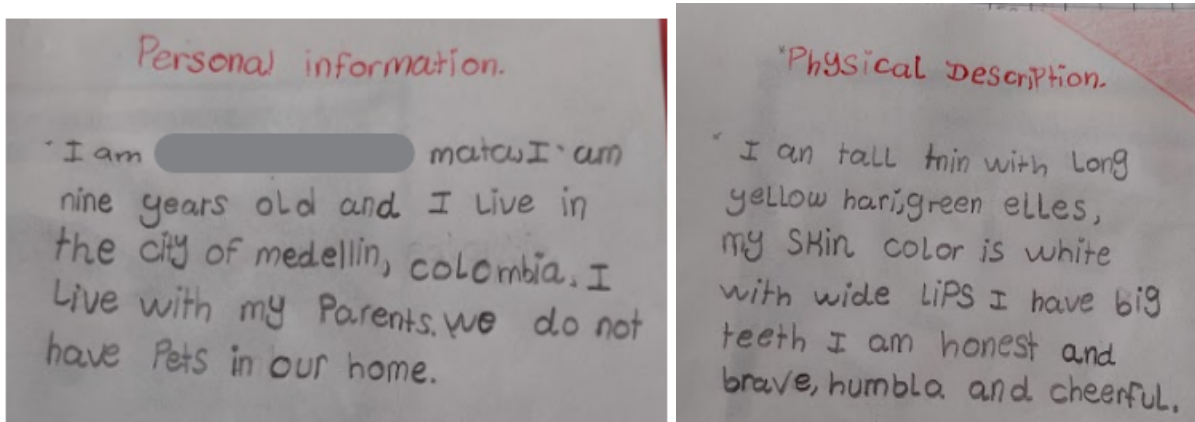 Personal information.
I am mataw I am
nine years old and I Live in
the city of medellin, colombia. I
Live with my Parents. we do not
have Pets in our home.
Physical Description.
I an tall tnin with Long
yellow hari,green elles,
my SKin color is white
with wide LiPS I have big
teeth I am honest and
brave, humbla and cheerful.